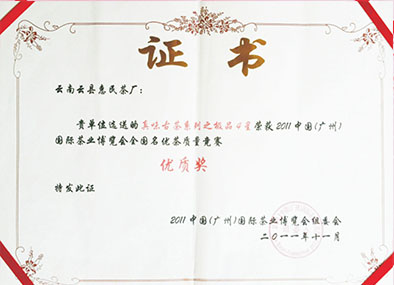 证书
云南云县惠民茶厂：
贵单位选送的真味古茶系列之极品 荣获2011中国(广州)
国际茶业博览会全国名优茶质量竞赛
优质奖
特发此证
2011中国(广州)国际茶业博览会组委会
二〇一一年十一月